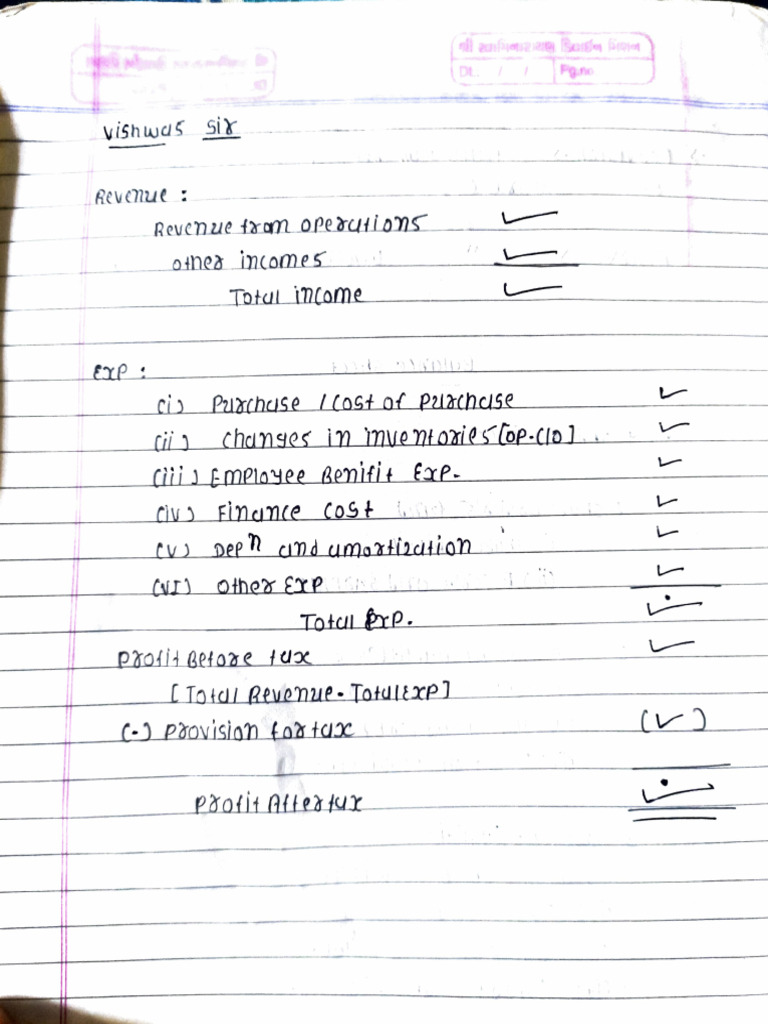 Dt. / / Pg.no
Vishwas Sir
Revenue :
Revenue from operations ✓
other incomes ✓
Total income ✓
Exp :
(i) Purchase / Cost of Purchase ✓
(ii) Changes in inventories [OP-C10] ✓
(iii) Employee Benifit Exp. ✓
(iv) Finance cost ✓
(v) Depn and amortization ✓
(VI) other Exp ✓
Total Exp. ✓
Profit Before tax ✓
[Total Revenue - Total Exp]
(-) Provision for tax (✓)
Profit After tax ✓